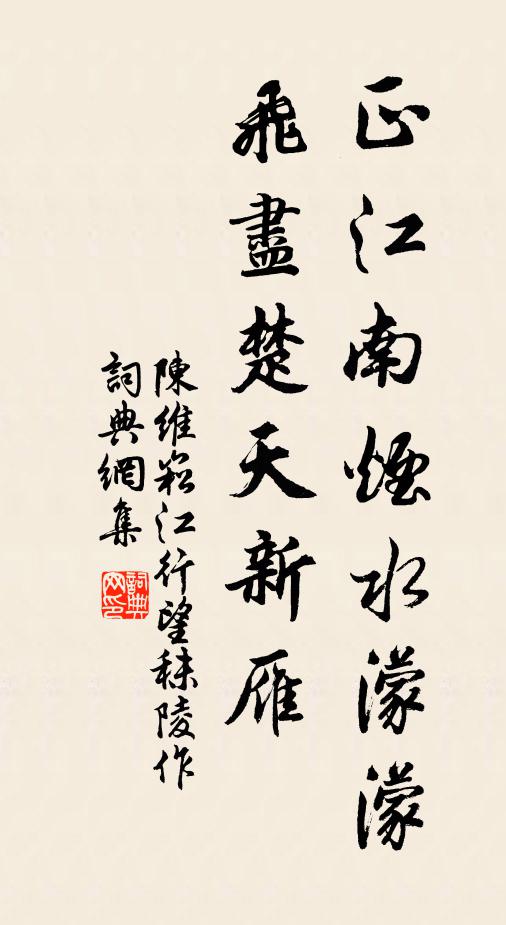 正江南煙水濛濛
飛盡楚天新雁
陳維崧江行望秣陵作
詞典網集
詞典
网印